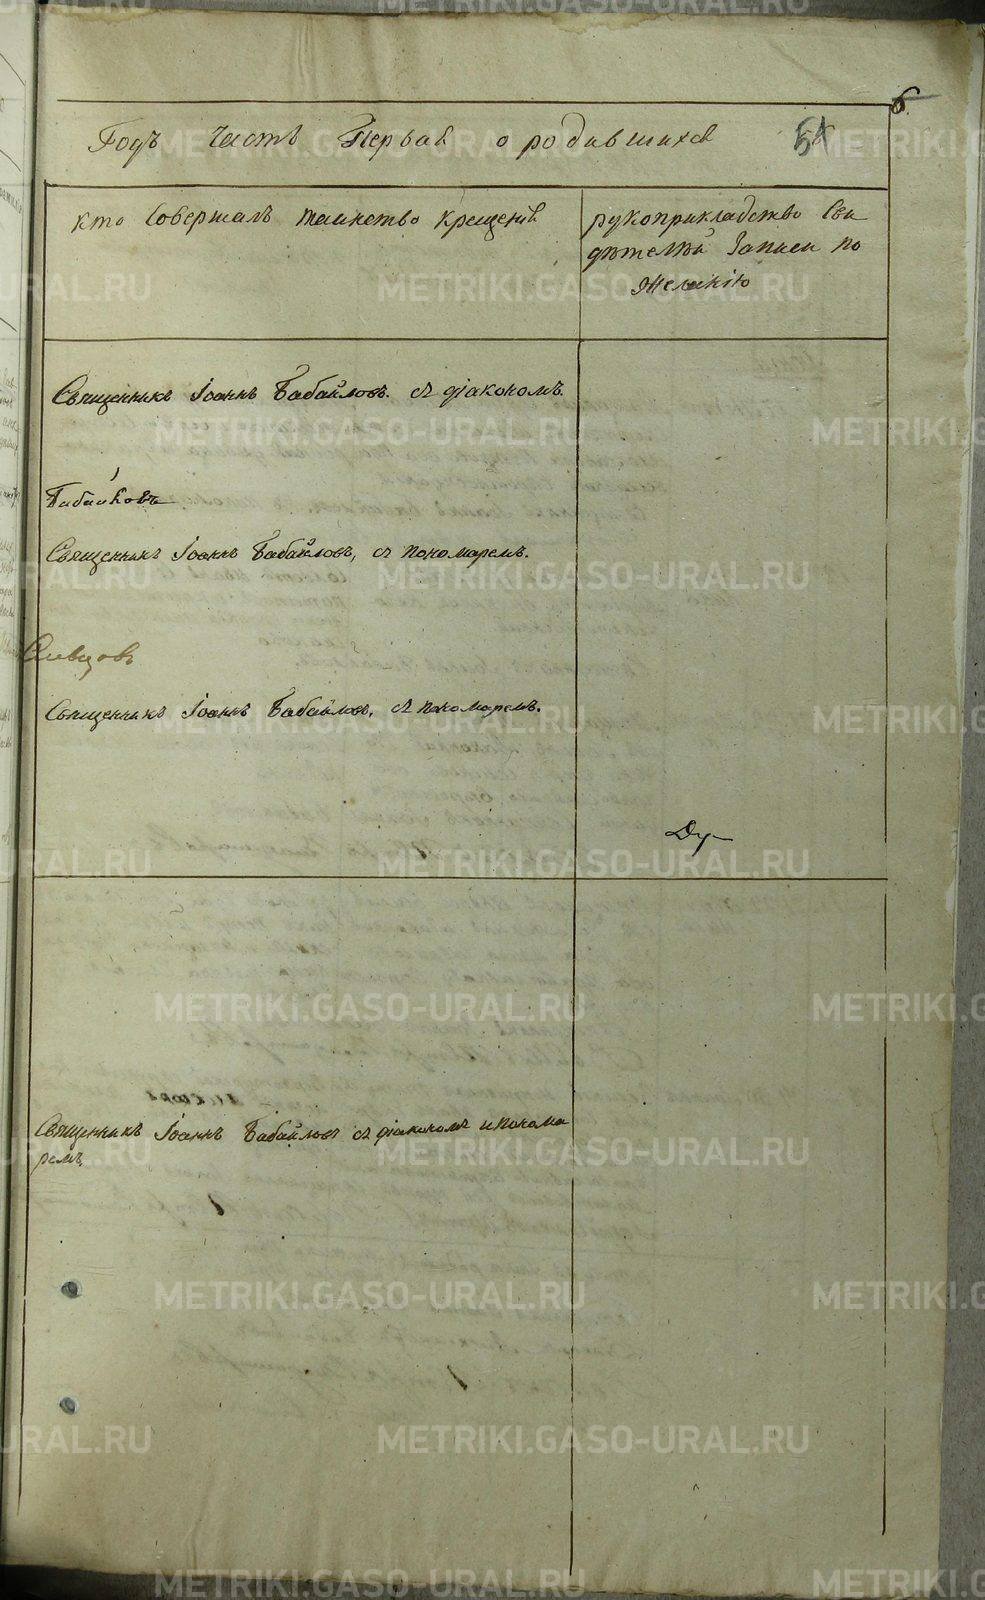 6
Годъ Часть Первая о родившихся 51
кто Совершалъ таинство крещенія
рукоприкладство Сви
дѣтелѣй Записи по
Желанію
Священникъ Іоаннъ Бабайловъ. съ діакономъ.
Священникъ Іоаннъ Бабайловъ, съ пономаремъ.
Слевцовъ
Священникъ Іоаннъ Бабайловъ, съ пономаремъ.
Ду
Священникъ Іоаннъ Бабайловъ съ діакономъ и понома
ремъ,
METRIKI.GASO-URAL.RU